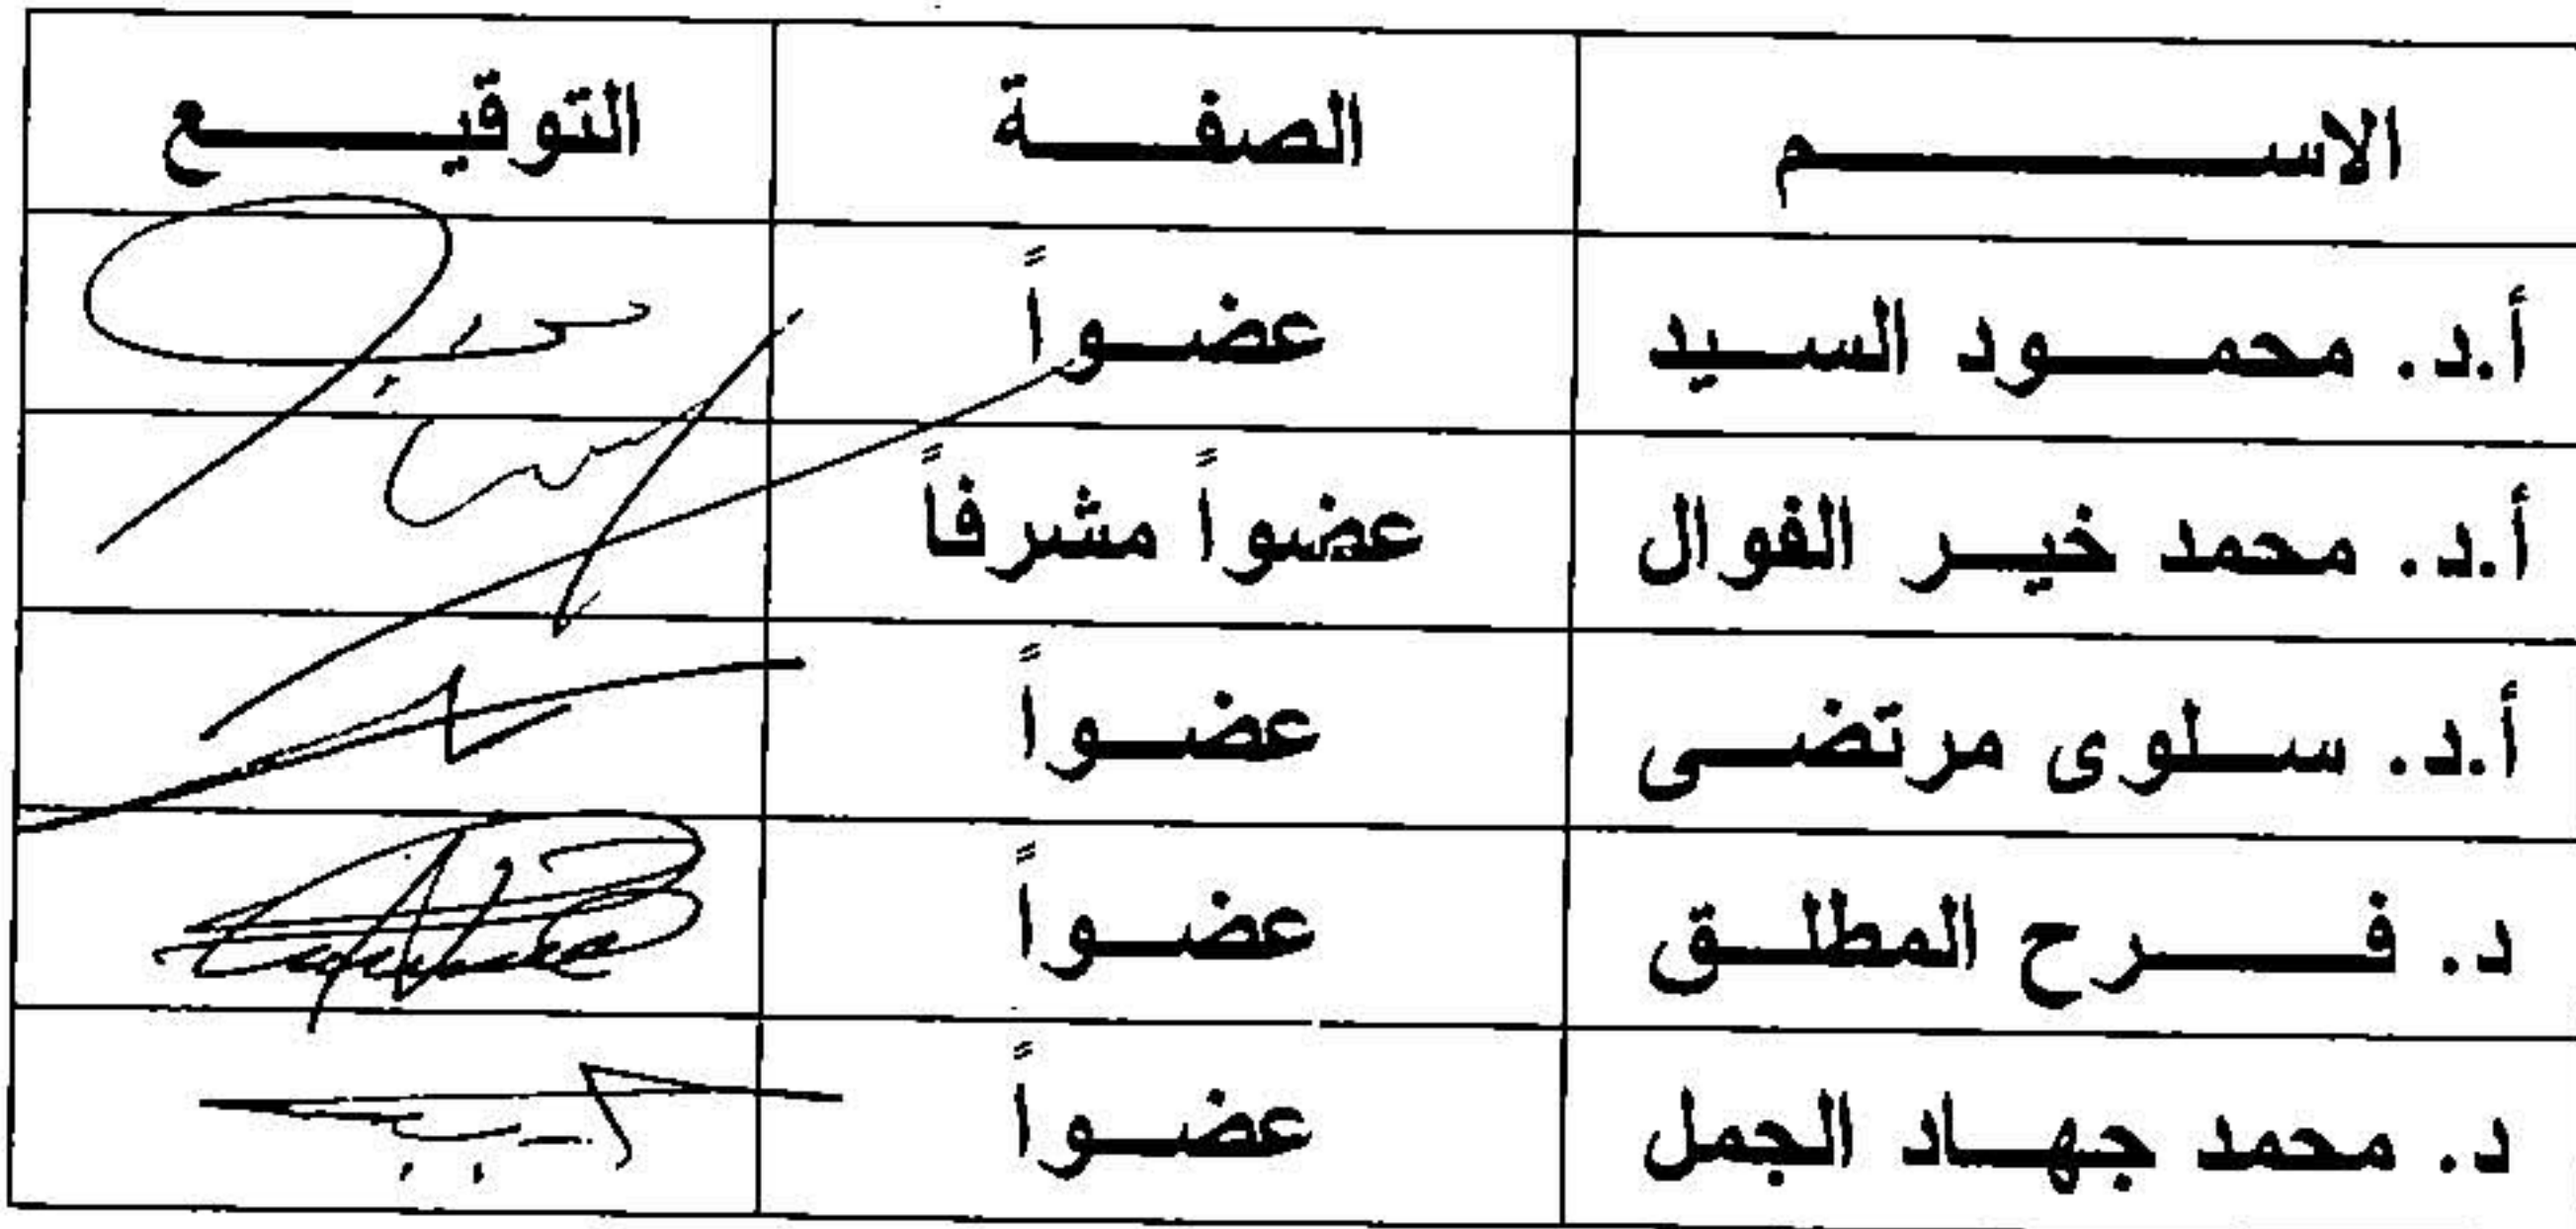 الاسم الصفة التوقيع
أ.د. محمود السيد عضواً
أ.د. محمد خير الفوال عضواً مشرفاً
أ.د. سلوى مرتضى عضواً
د. فرح المطلق عضواً
د. محمد جهاد الجمل عضواً